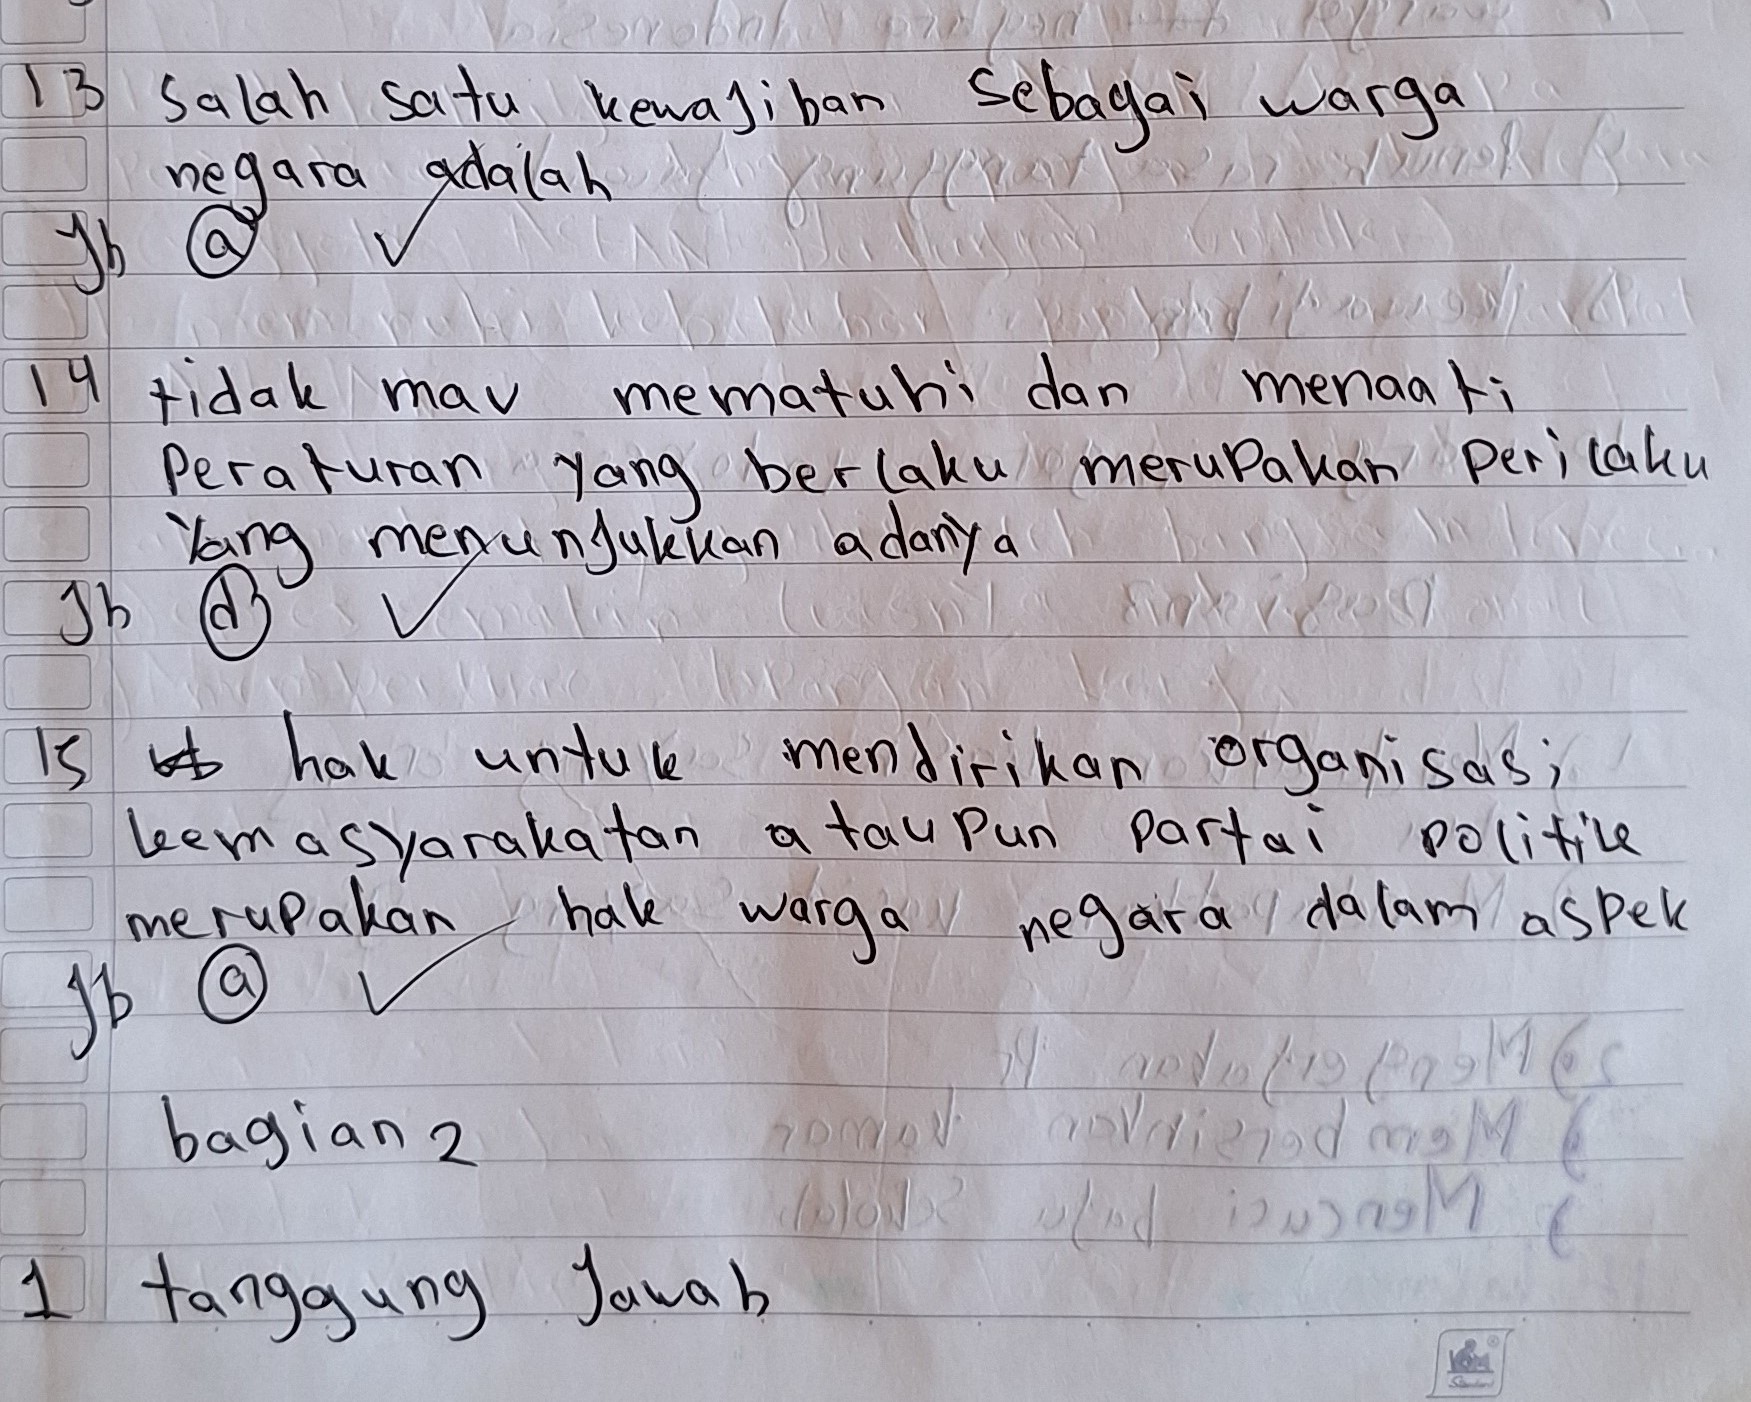 13 Salah satu kewajiban sebagai warga
negara adalah
Jb a
14 tidak mau mematuhi dan menaati
Peraturan yang berlaku merupakan Perilaku
Yang menunjukkan adanya
Jb d
15 hak untuk mendirikan organisasi
kemasyarakatan ataupun partai politik
merupakan hak warga negara dalam aspek
Jb a
bagian 2
1 tanggung Jawab